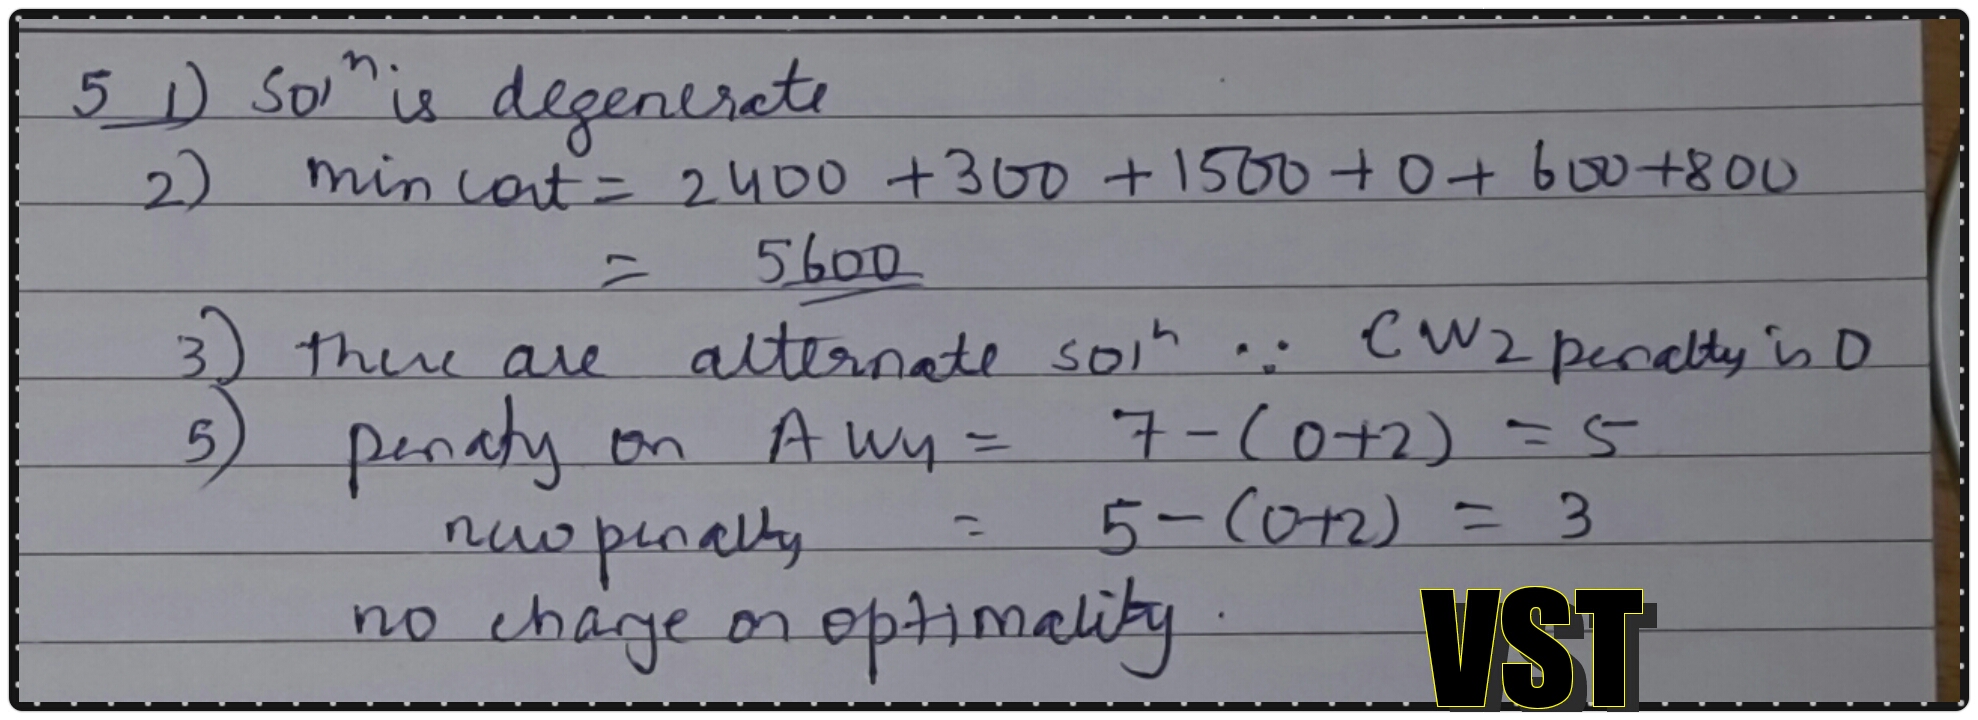 5 1) Solⁿ is degenerate
2) min cost = 2400 + 300 + 1500 + 0 + 600 + 800
= 5600
3) there are alternate solⁿ ∵ CW2 penalty is 0
5) penaty on AW4 = 7 - (0+2) = 5
new penalty = 5 - (0+2) = 3
no change on optimality.
VST